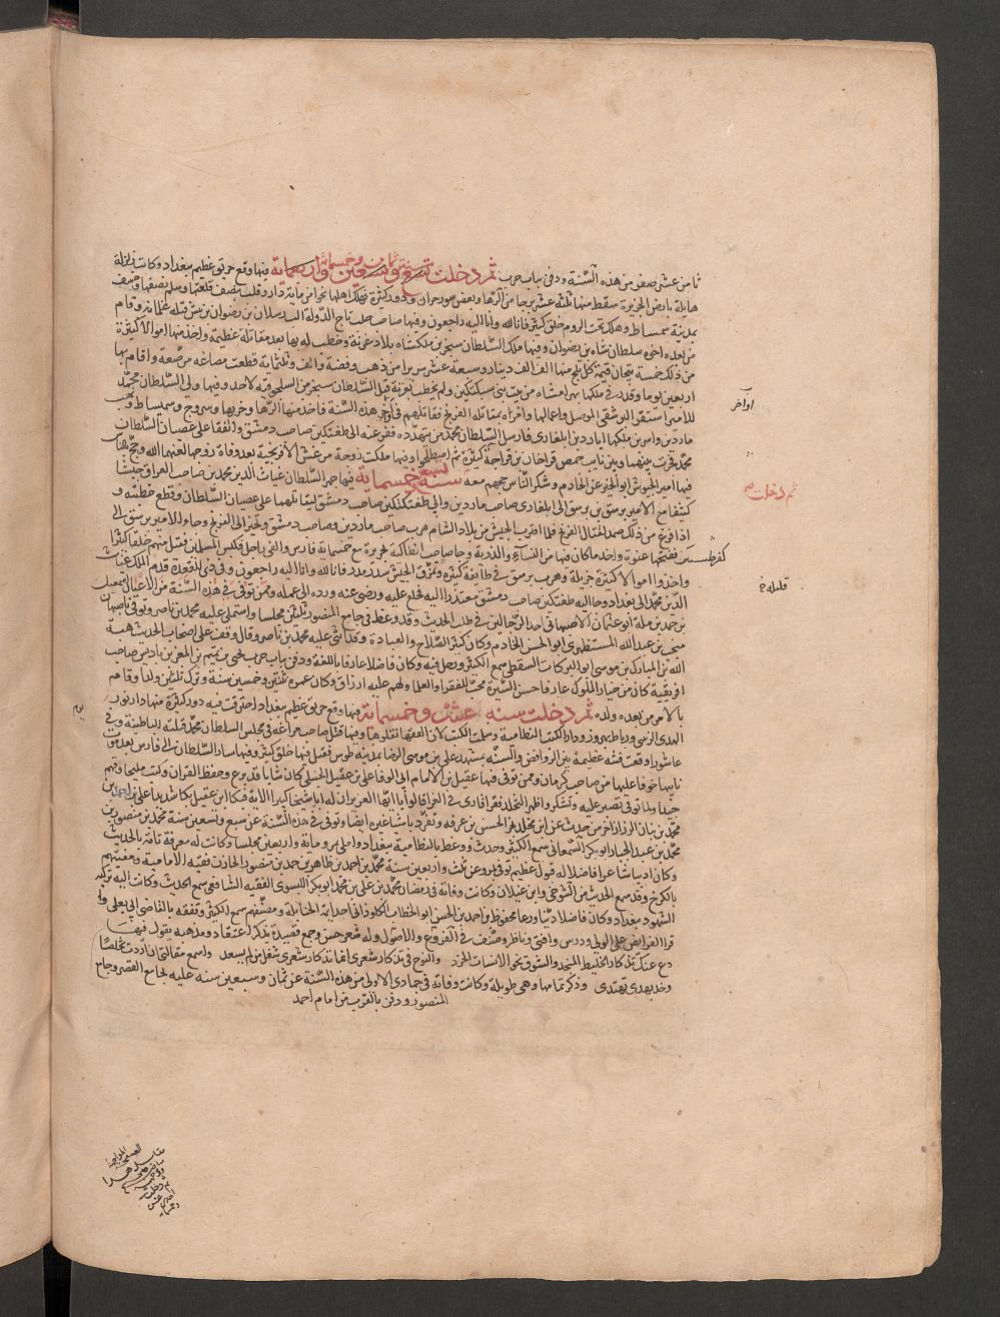 ثامن عشر صفر من هذه السنة ودفن بباب حرب ثم دخلت سنة ثمان وخمسمائة فيها وقع حريق عظيم ببغداد وكانت زلزلة
هايلة بارض الجزيرة سقط منها ثلثة عشر برجا من الرها وبعض سور حران ودور كثيرة وهلك اهلها نحوا من ماية دار وقلب نصف قلعتها وسلم نصفها وخسف
بمدينة سميساط وهلك تحت الردم خلق كثير فانا لله وانا اليه راجعون وفيها صاحب حلب تاج الدولة الب رسلان بن رضوان بن تتش قتله غلمانه وقام
من بعده اخوه سلطان شاه بن رضوان وفيها ملك السلطان سنجر بن ملكشاه بلاد غزنة وخطب له بها بعد مقاتلة عظيمة واخذ منها اموالا كثيرة
من ذلك خمسة تيجان قيمة كل تاج منها الف الف دينار وسبعة عشر سريرا من ذهب وفضة والف وثلثماية قطعة مصاغه مرصعة واقام بها
اربعين يوما وقرر في ملكها بهرامشاه من بيت بني سبكتكين ولم يخطب بغزنة قبل السلطان سنجر من السلجوقيه لاحد وفيها ولى السلطان محمد
للامير اقسنقر البرسقي الموصل واعمالها وامره بمقاتلة الفرنج فقاتلهم في اخر هذه السنة فاخذ منهم الرها وخربها وسروج وسميساط ونهب
ماردين واسر ابن ملكها اياز بن ايلغازي فارسل السلطان محمد من يتهدده ففر عنه الى طغتكين صاحب دمشق واتفقا على عصيان السلطان
محمد فجرت بينهما وبين نايب حمص قراخان بن قراجه كثيرة ثم اصطلحوا وفيها ملكت زوجة مرعش الافرنجية بعد وفاة زوجها لعنهما الله وحج بالناس
فيها امير الجيوش ابو الخير يمن الخادم وشكر الناس حجهم معه سنة تسع وخمسماية فيها جهز السلطان غياث الدين محمد بن صاحب العراق جيشا
كثيفا مع الامير برسق بن برسق الى ايلغازي صاحب ماردين والى طغتكين صاحب دمشق ليقاتلهما على عصيان السلطان وقطع خطبته و
اذا فرغ من ذلك عمد لقتال الفرنج فلما اقترب الجيش من بلاد الشام هرب صاحب ماردين وصاحب دمشق وتحيزا الى الفرنج وجاء الامير برسق الى
كفرطاب ففتحها عنوة واخذ ما كان فيها من النساء والذرية وجا صاحب انطاكية في جريدة مع خمسماية فارس والفي راجل فكبس المسلمين فقتل منهم خلقا كثيرا
واخذوا اموالا كثيرة جزيلة وهرب برسق في طايفة كثيرة وتمزق الجيش شذر مذر فانا لله وانا اليه راجعون وفي ذي القعدة قدم الملك غياث
الدين محمد الى بغداد وجا اليه طغتكين صاحب دمشق معتذرا اليه فخلع عليه ورضي عنه ورده الى عمله وممن توفي في هذه السنة من الاعيان اسمعيل
بن محمد بن ملة ابو عثمان الاصبهاني احد الرحالين في طلب الحديث وقد وعظ في جامع المنصور ثلثين مجلسا واستملى عليه محمد بن ناصر وتوفي باصبهان
منجب بن عبد الله المستظهري ابو الحسن الخادم وكان كثير الصلاح والعبادة وقد اثنى عليه محمد بن ناصر وقال وقف على اصحاب الحديث هبة
الله بن المبارك بن موسى ابو البركات السقطي سمع الكثير ورحل فيه وكان فاضلا عارفا باللغة ودفن بباب حرب يحيى بن تميم بن المعز بن باديس صاحب
افريقية كان من خيار الملوك عارفا حسن السيرة محبا للفقرا والعلما ولهم عليه ارزاق وكان عمره ثنتين وخمسين سنة وترك ثلثين ولدا وقام
بالامر من بعده ولده ثم دخلت سنه عشر وخمسماية فيها وقع حريق عظيم ببغداد احترقت فيه دور كثيرة منها دار نور
الهدى الزينبي ورباط بهروز ودار الكتب النظامية وسلمت الكتب لان الفقها نقلوها وفيها قتل صاحب مراغة في مجلس السلطان محمد قتله الباطنية وفي
عاشورا وقعت فتنة عظيمة بين الروافض والسنة بمشهد علي بن موسى الرضا بمدينة طوس فقتل فيها خلق كثير وفيها سار السلطان الى فارس بعد موت
نايبها خوفا عليها من صاحب كرمان وممن توفي فيها عقيل بن الامام ابي الوفا علي بن عقيل الحنبلي كان شابا قد برع وحفظ القران وكتب مليحا وفهم
جيدا ولما توفي تصبر عليه وتشكر واظهر التجلد فقرا قاري في العزا قالوا يا ايها العزيز ان له ابا شيخا كبيرا الاية فبكا ابن عقيل بكا شديدا علي بن احمد بن
محمد بن بيان الرزاز اخر من حدث عن ابن مخلد بجزء الحسن بن عرفه وتفرد باشيا غيره ايضا وتوفي في هذه السنة عن سبع وتسعين سنة محمد بن منصور بن
محمد بن عبد الجبار ابو بكر السمعاني سمع الكثير وحدث ووعظ بالنظامية ببغداد واملى بمرو ماية واربعين مجلسا وكانت له معرفة تامة بالحديث
وكان اديبا شاعرا فاضلا له قبول عظيم توفي بمرو عن ثلث واربعين سنة محمد بن احمد بن طاهر بن حمد بن منصور الخازن فقيه الامامية ومفتيهم
بالكرخ وقد سمع الحديث من التنوخي وابن غيلان وكانت وفاته في رمضان محمد بن علي بن محمد ابو بكر النسوي الفقيه الشافعي سمع الحديث وكانت اليه تزكية
الشهود ببغداد وكان فاضلا دينا ورعا محفوظ بن احمد بن الحسن ابو الخطاب الكلوذاني احد ايمة الحنابلة ومصنفيهم سمع الكثير وتفقه بالقاضي ابي يعلى و
قرا الفرايض على الوني ودرس وافتى وناظر وصنف في الفروع والاصول وله شعر حسن وجمع قصيدة يذكر اعتقاده ومذهبه يقول فيها
دع عنك تذكار الخليط المنجد والشوق نحو الانسات الخرد والنوح في تذكار سعدى انما تذكار سعدى شغل من لم يسعد واسمع مقالتي ان اردت تخلصا
وخذ بهدي تهتدي وذكر تمامها وهي طويلة وكانت وفاته في جمادى الاولى من هذه السنة عن ثمان وسبعين سنه وصلي عليه بجامع القصر وجامع
المنصور ودفن بالقرب من امام احمد
اواخر
ثم دخلت
قليله
يوم